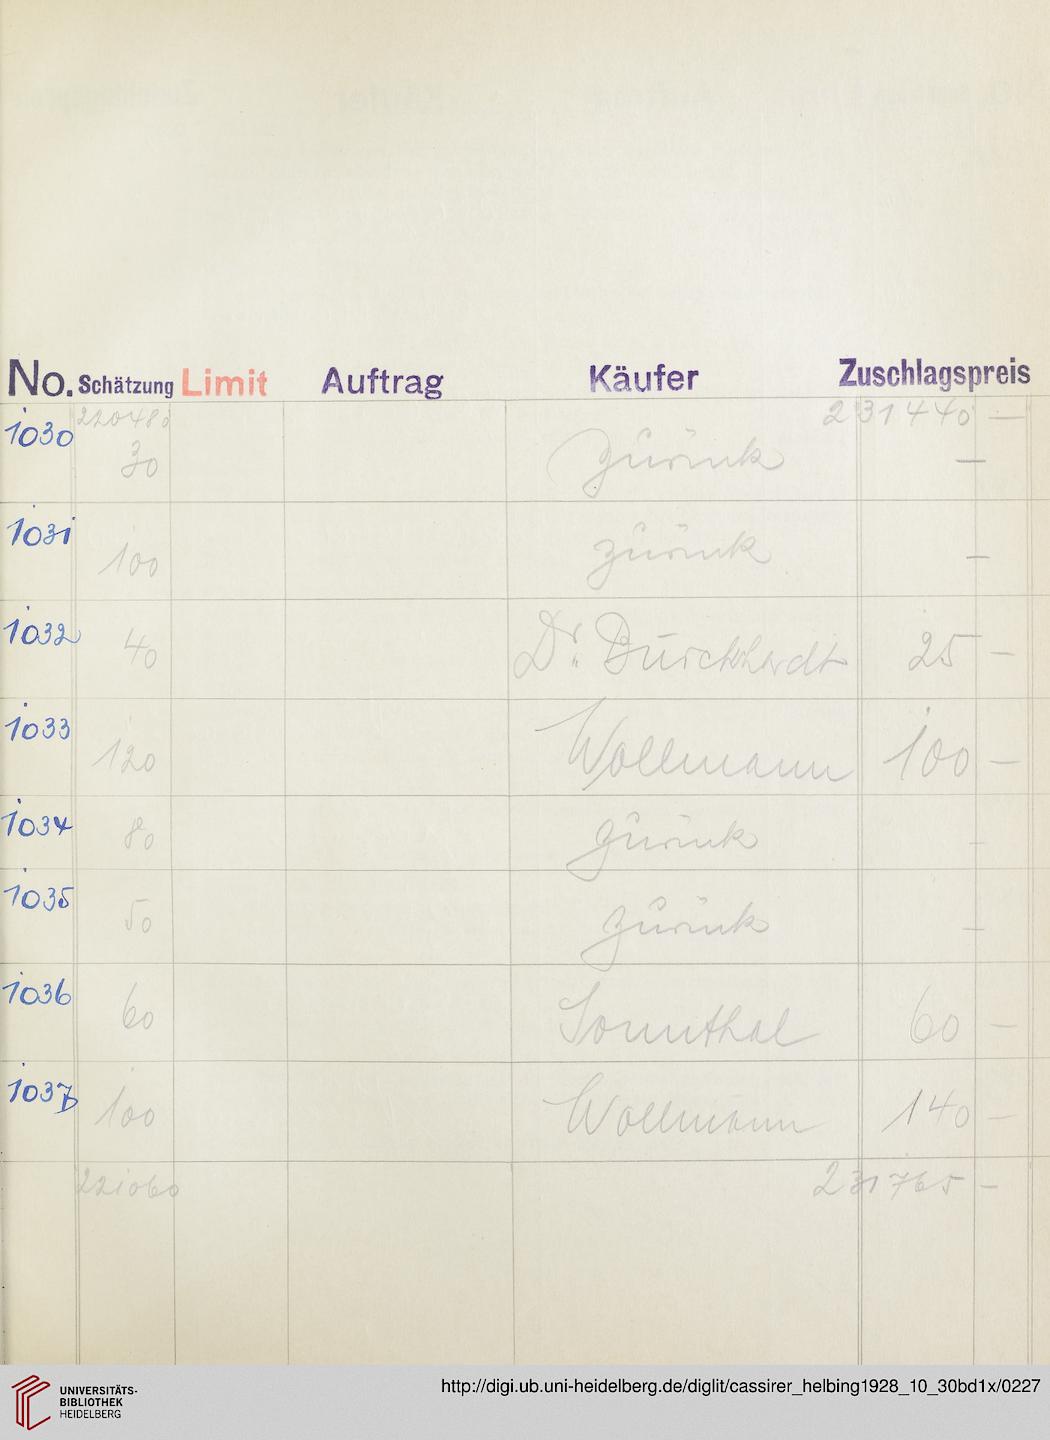 No. Schätzung Limit Auftrag Käufer Zuschlagspreis
220480 231440 —
1030 30 zurück —
1031 100 zurück —
1032 40 Dr. Burckhardt 25 —
1033 120 Wollmann 100 —
1034 80 zurück —
1035 50 zurück —
1036 60 Sonnthal 60 —
1037 100 Wollmann 140 —
221060 231765 —
UNIVERSITÄTS-
BIBLIOTHEK
HEIDELBERG
http://digi.ub.uni-heidelberg.de/diglit/cassirer_helbing1928_10_30bd1x/0227